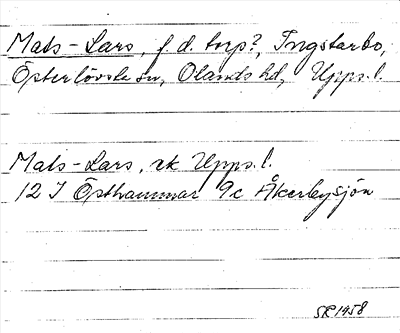 Mats-Lars, f.d. torp?, Ingstarbo,
Österlövsta sn, Olands hd, Upps.l.
Mats-Lars, ek Upps.l.
12 I Östhammar 9c Åkerbysjön
SR 1958